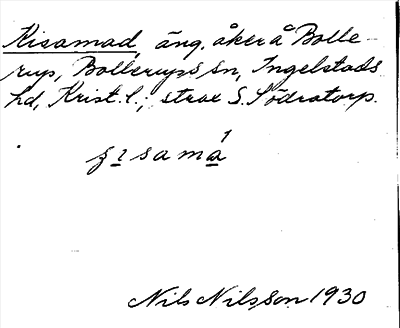 Kisamad, äng. åker å Bolle-
rup, Bollerups sn, Ingelstads
hd, Krist. l.; strax S. Södratorp.
1
Nils Nilsson 1930